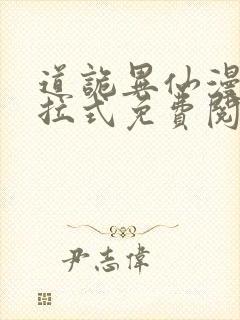 道詭異仙漫
拉式免費閱
尹志偉